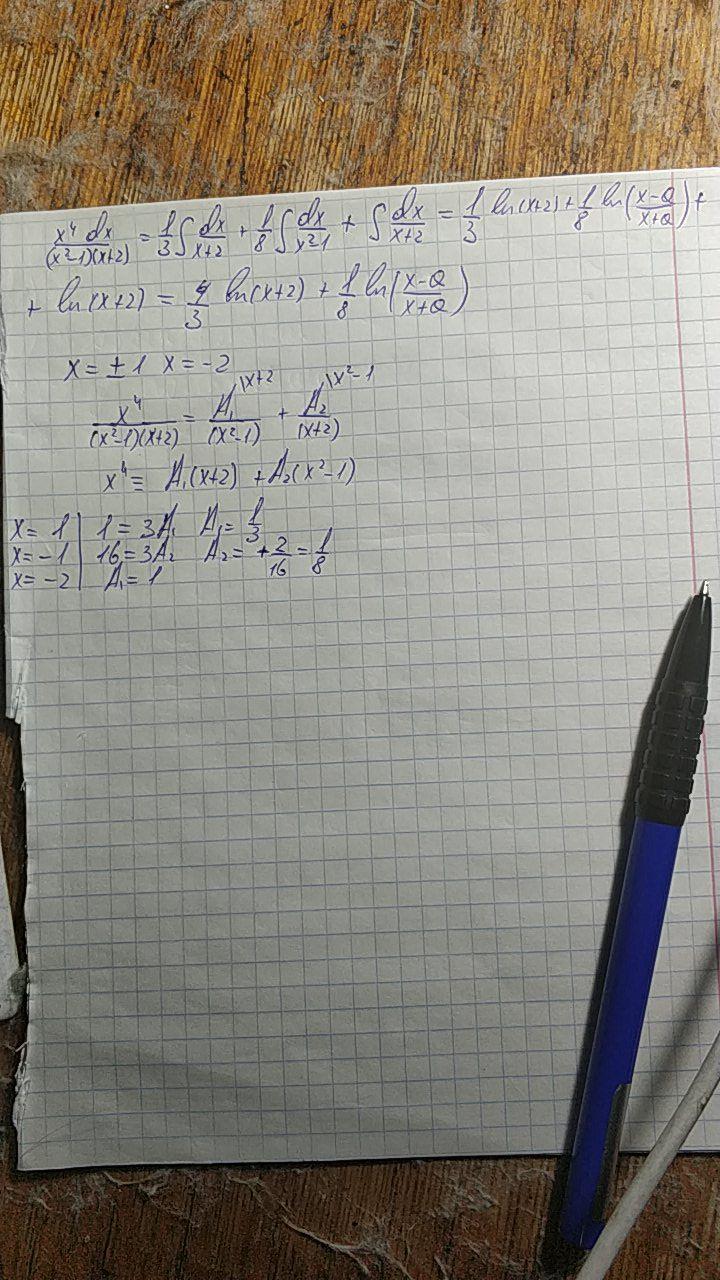 x⁴ dx/(x²-1)(x+2) = 1/3 ∫ dx/x+2 + 1/8 ∫ dx/x²-1 + ∫ dx/x+2 = 1/3 ln(x+2) + 1/8 ln(x-a/x+a) +
+ ln(x+2) = 4/3 ln(x+2) + 1/8 ln(x-a/x+a)
x = ± 1 x = -2
x⁴/(x²-1)(x+2) = A₁\x+2/(x²-1) + A₂\x²-1/(x+2)
x⁴ ≡ A₁(x+2) + A₂(x²-1)
x = 1 | 1 = 3A₁ A₁ = 1/3
x = -1 | 16 = 3A₂ A₂ = +2/16 = 1/8
x = -2 | A₁ = 1